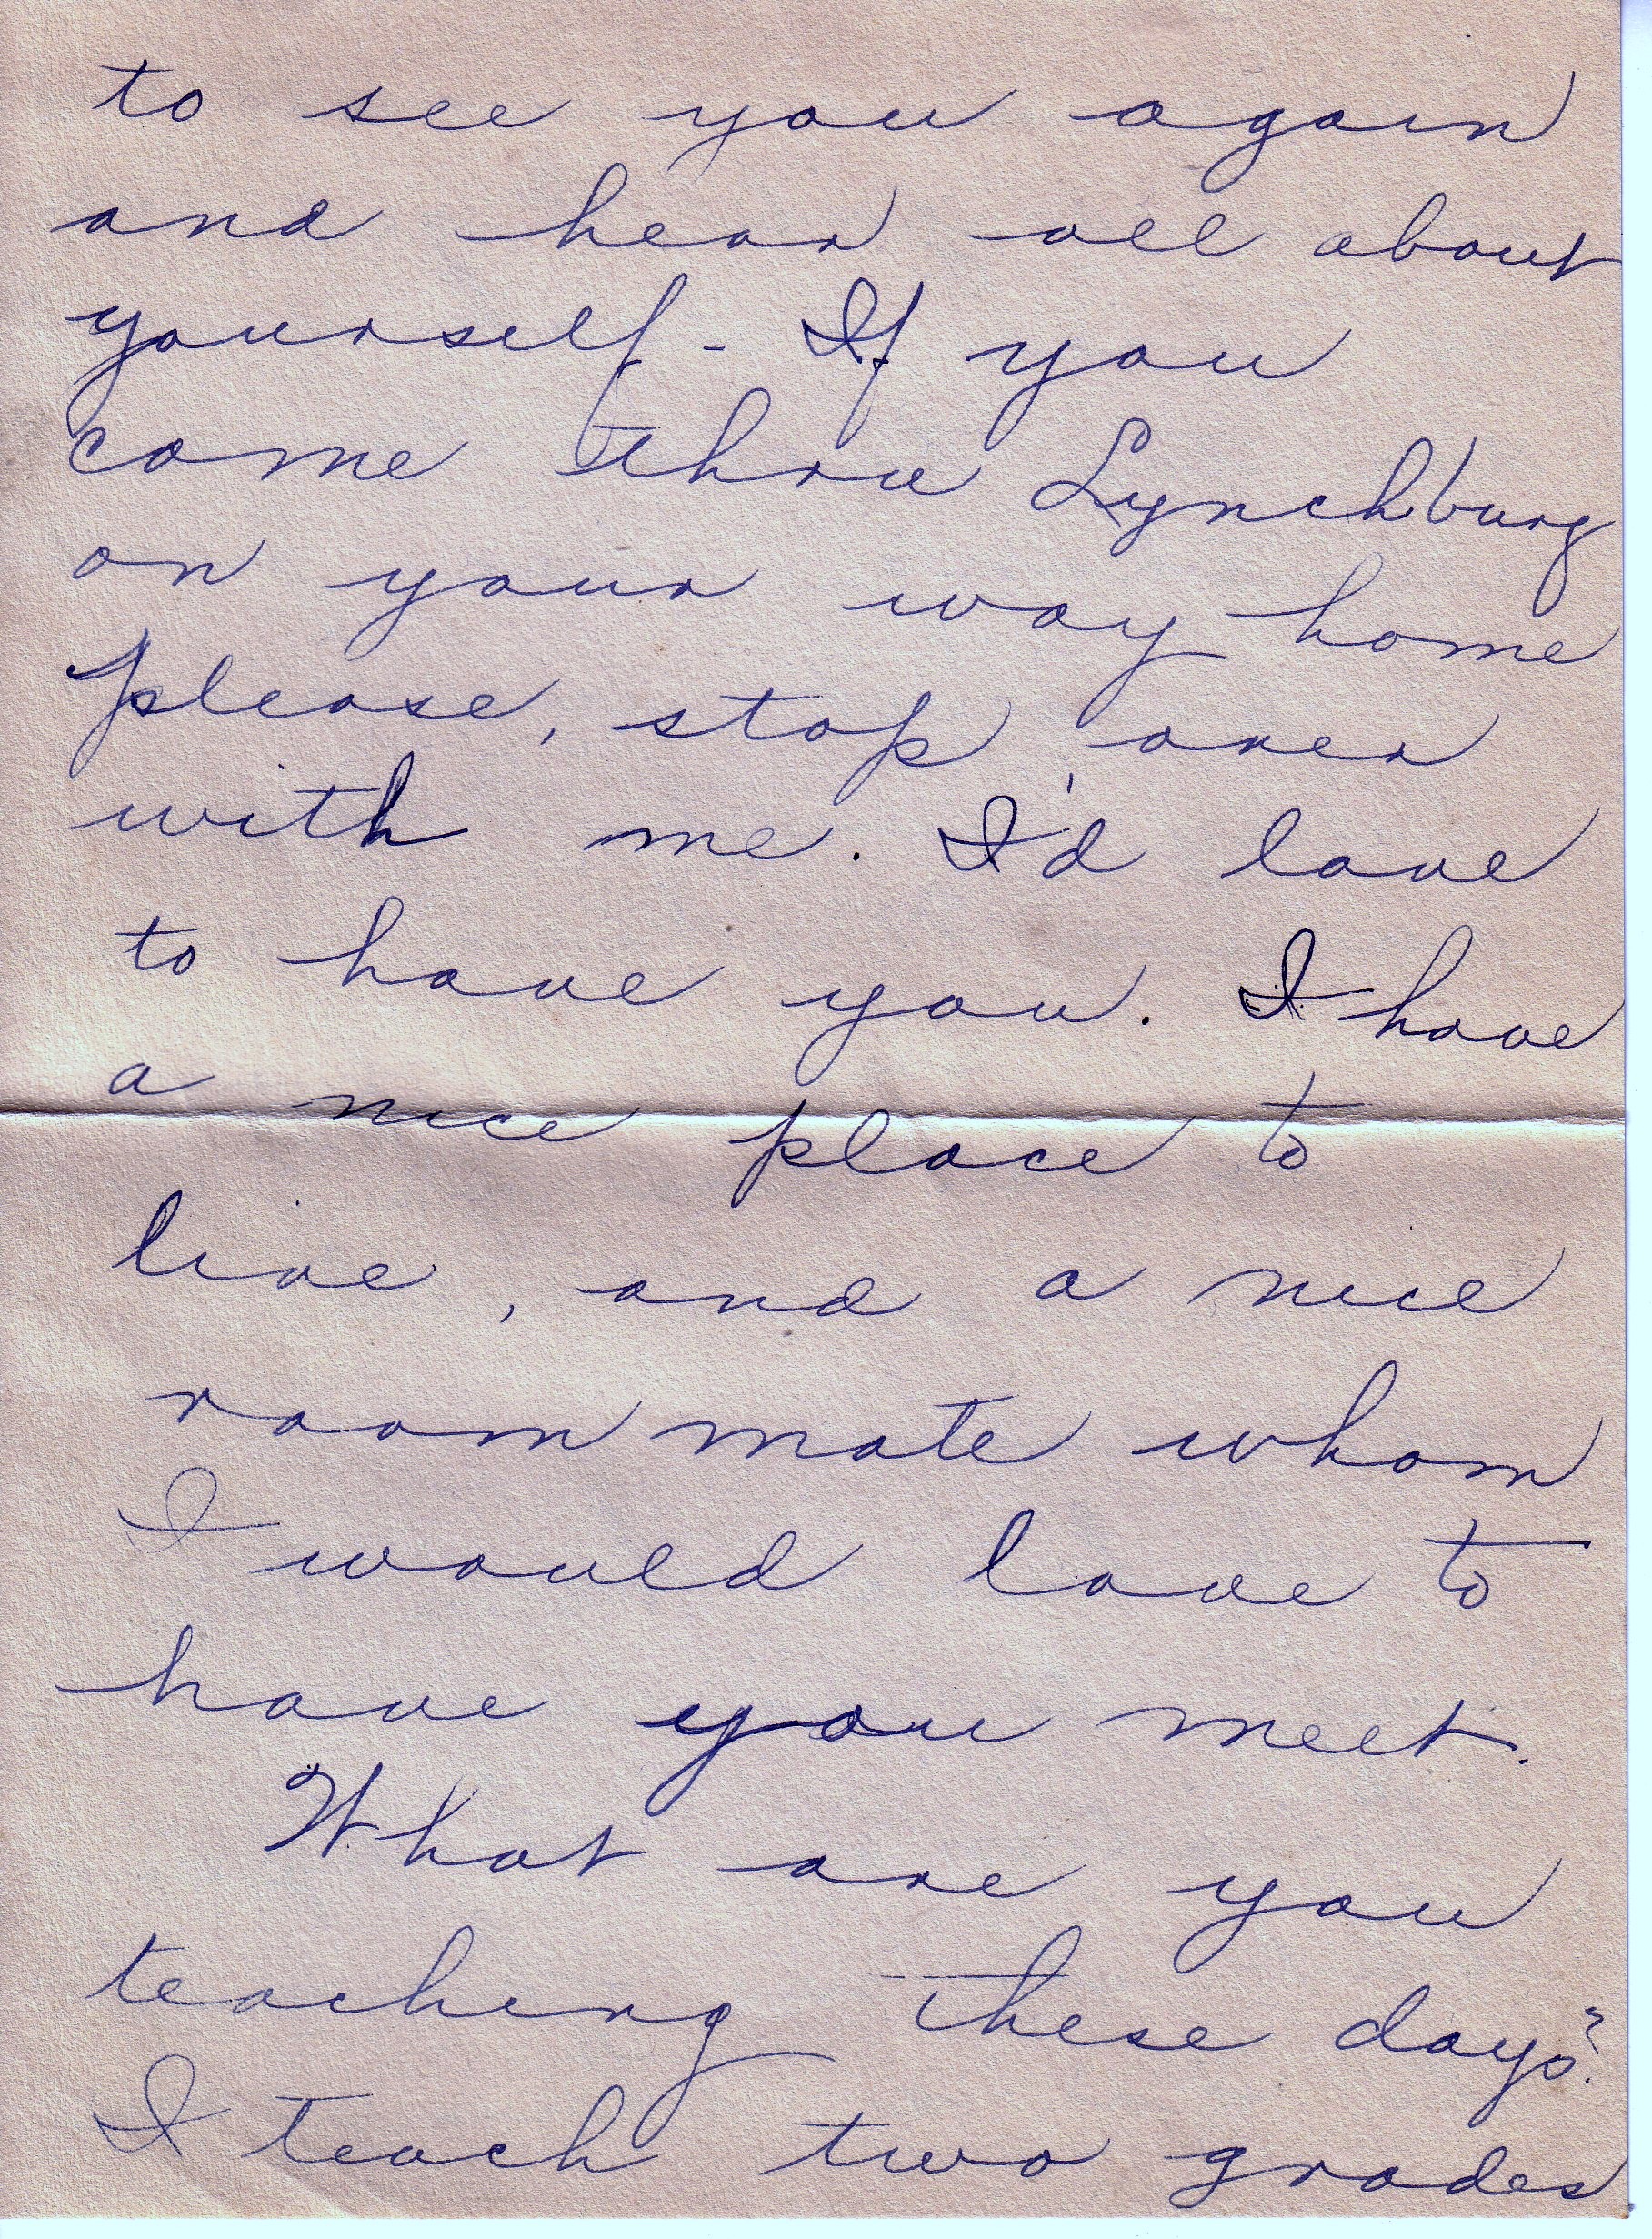 to see you again
and hear all about
yourself - If you
come thru Lynchburg
on your way home
please, stop over
with me. I'd love
to have you. I have
a nice place to
live, and a nice
room mate whom
I would love to
have you meet.
What are you
teaching these days?
I teach two grades